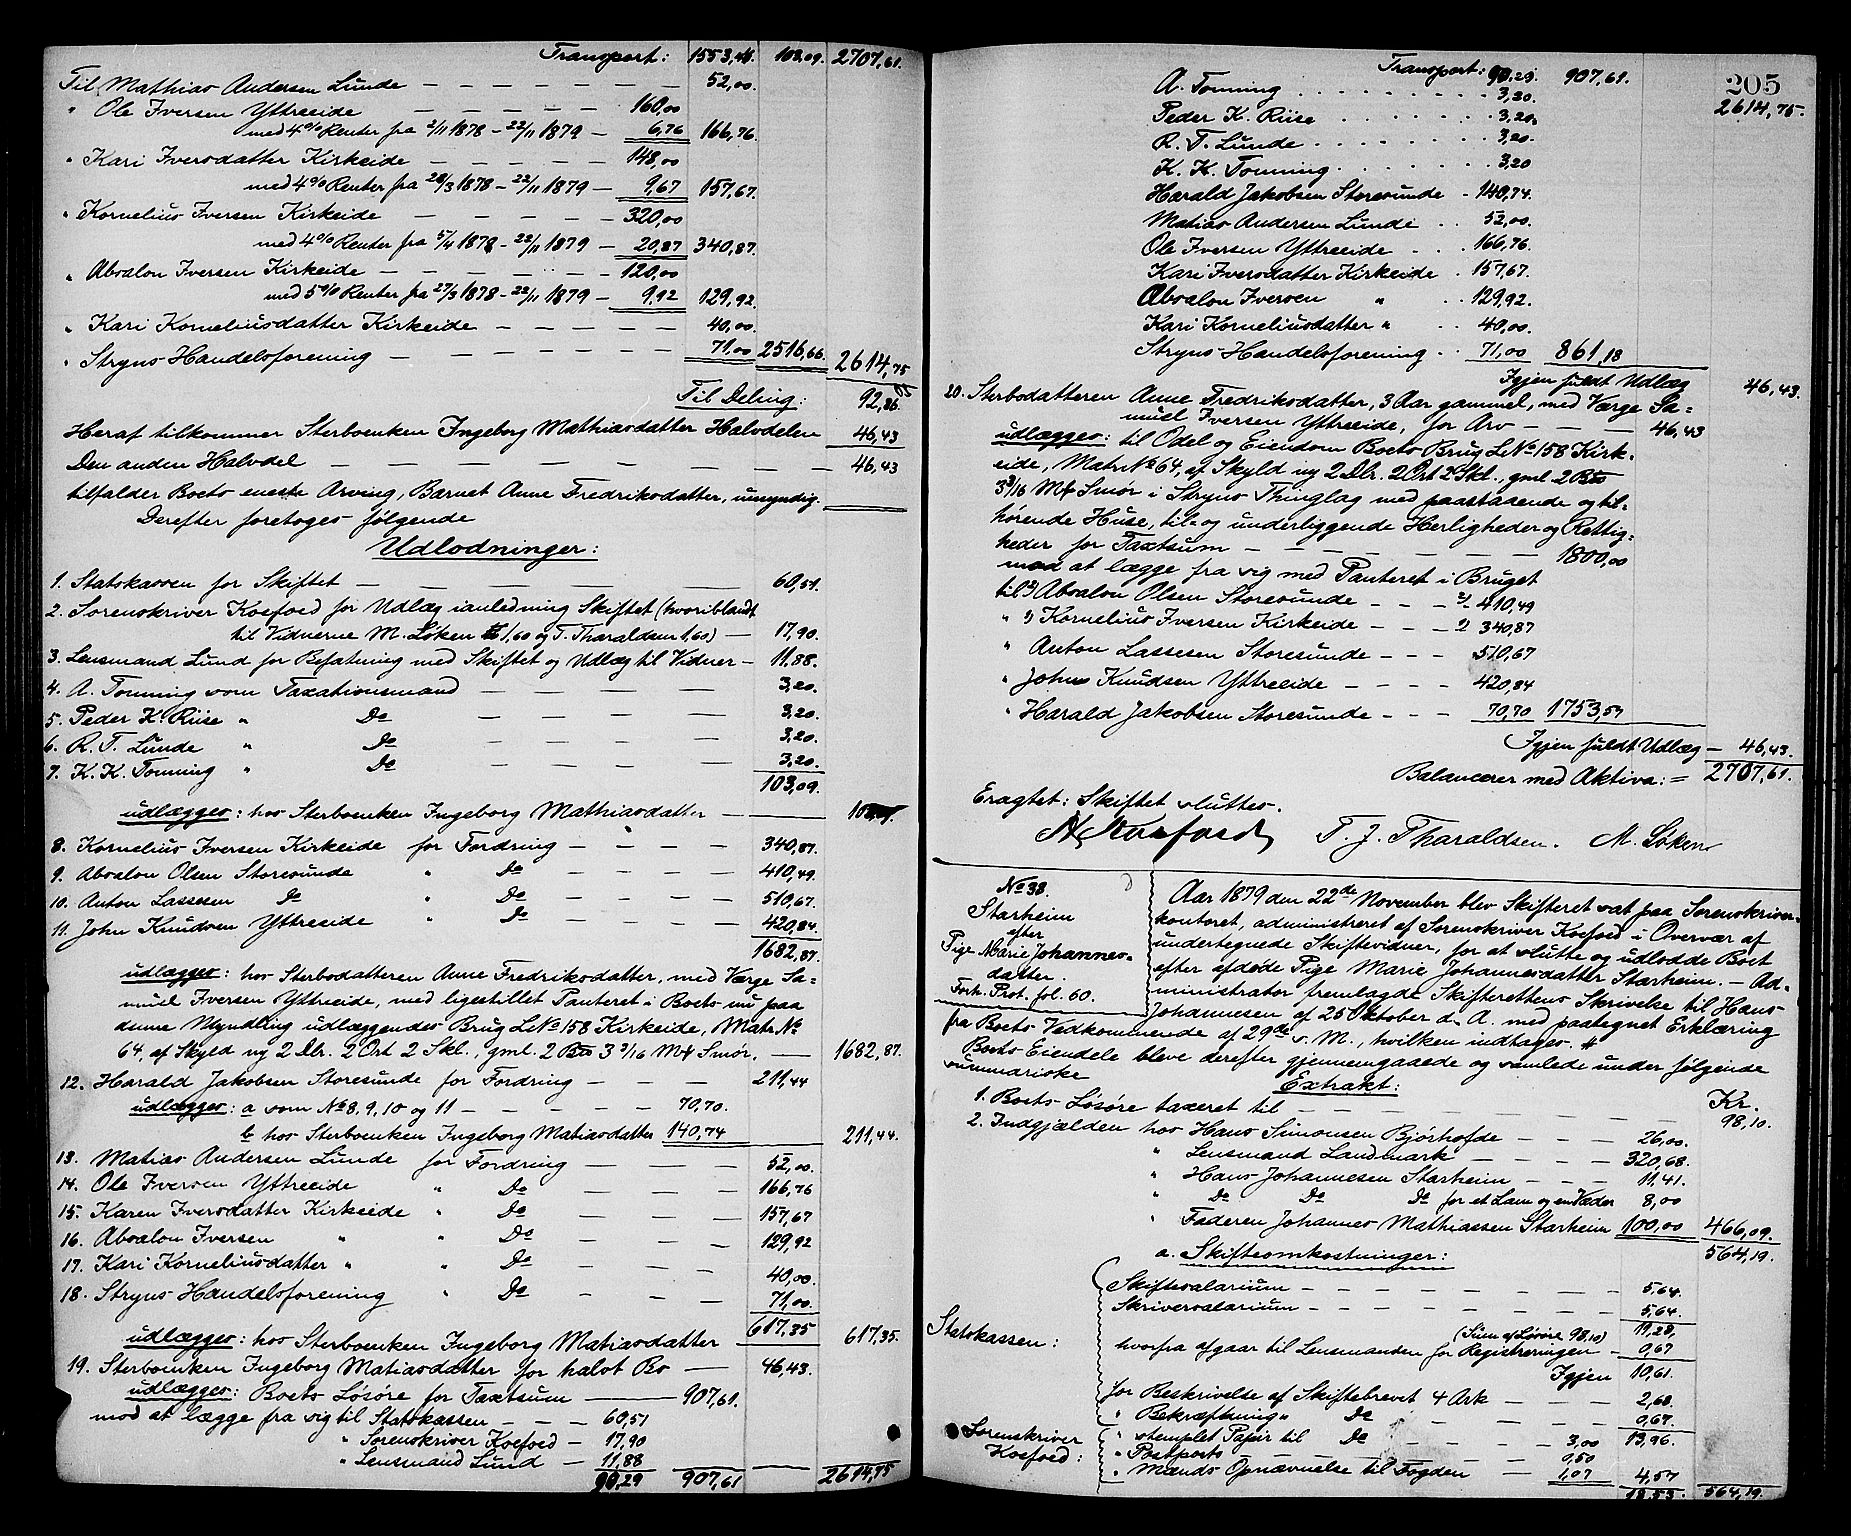 Transport: 1553,44 103,09. 2707,61.
Til Mathias Andersen Lunde — — — — — — 52,00.
" Ole Iversen Yttreeide — — — — 160,00
med 4% Renter fra 2/11 1878 - 22/11 1879 — 6,76 166,76.
" Kari Iversdatter Kirkeide — — — — 148,00
med 4% Renter fra 28/3 1878 - 22/11 1879 — 9,67 157,67.
" Kornelius Iversen Kirkeide — — — — 320,00
med 4% Renter fra 5/4 1878 - 22/11 1879 — 20,87 340,87.
" Absalon Iversen Kirkeide — — — — 120,00
med 5% Renter fra 27/3 1878 - 22/11 1879 — 9,92 129,92.
" Kari Korneliusdatter Kirkeide — — — — 40,00.
" Stryns Handelsforening — — — — — 71,00 2516,66. 2614,75
Til Deling: 92,86.
Heraf tilkommer Sterboenken Ingeborg Mathiasdatter Halvdelen 46,43
Den anden Halvdel — — — — — — — — 46,43
tilfalder Boets eneste Arving, Barnet Anne Fredriksdatter, umyndig.
Derefter foretoges følgende
Udlodninger:
1. Statskassen for Skiftet — — — — — 60,51.
2. Sorenskriver Koefoed for Udlæg ianledning Skiftet (hvoriblandt
til Vidnerne M. Løken 1,60 og T. Tharaldsen 1,60) — 17,90.
3. Lensmand Lund for Befatning med Skiftet og Udlæg til Vidner — 11,88.
4. A. Tonning som Taxationsmand — — — — 3,20.
5. Peder K. Riise " Do — — — — 3,20.
6. R. T. Lunde " Do — — — — 3,20.
7. K. K. Tonning " Do — — — — 3,20.
103,09.
udlægges: hos Sterboenken Ingeborg Mathiasdatter — — 103,09.
8. Kornelius Iversen Kirkeide for Fordring — — — 340,87.
9. Absalon Olsen Storesunde " Do — — — 410,49.
10. Anton Lassesen Do " Do — — — 510,67.
11. John Knudsen Yttreeide " Do — — — 420,84.
1682,87.
udlægges: hos Sterbodatteren Anne Fredriksdatter, med Værge Sa=
muel Iversen Yttreeide, med ligestillet Panteret i Boets nu paa
denne Myndling udlæggendes Brug L№ 158 Kirkeide, Matr№
64, af Skyld ny 2 Dlr. 2 Ort 2 Skl., gml. 2 Bes 3 3/16 Mk Smør. — 1682,87.
12. Harald Jakobsen Storesunde for Fordring — — — 211,44
udlægges: a som №8, 9, 10 og 11 — — — — 70,70.
b hos Sterboenken Ingeborg Matiasdatter 140,74 211,44.
13. Matias Andersen Lunde for Fordring — — — 52,00.
14. Ole Iversen Yttreeide " Do — — — 166,76
15. Karen Iversdatter Kirkeide " Do — — — 157,67
16. Absalon Iversen " " Do — — — 129,92
17. Kari Korneliusdatter " " Do — — — 40,00.
18. Stryns Handelsforening " Do — — — 71,00.
617,35
udlægges: hos Sterboenken Ingeborg Matiasdatter — — 617,35.
19. Sterboenken Ingeborg Matiasdatter for halvt Bo — 46,43.
udlægges: Boets Løsøre for Taxtsum — — 907,61.
mod at lægge fra sig til Statskassen — — — 60,51
" Sorenskriver Koefoed — 17,90
" Lensmand Lund — 11,88
90,29 907,61 2614,75
205
Transport: 90,29. 907,61. 2614,75.
A. Tonning . . . . . . . . . 3,20.
Peder K. Riise . . . . . . . 3,20.
R. T. Lunde . . . . . . . . 3,20.
K. K. Tonning . . . . . . . 3,20
Harald Jakobsen Storesunde . 140,74.
Matias Andersen Lunde . . 52,00.
Ole Iversen Yttreeide . . . 166,76.
Kari Iversdatter Kirkeide . 157,67.
Absalon Iversen " . . 129,92.
Kari Korneliusdatter " . . 40,00.
Stryns Handelsforening . . 71,00 861,18
Igjen fuldt Udlæg 46,43.
20. Sterbodatteren Anne Fredriksdatter, 3 Aar gammel, med Værge Sa=
muel Iversen Yttreeide, for Arv — — — 46,43
udlægges: til Odel og Eiendom Boets Brug L№ 158 Kirk=
eide, Matr№ 64, af Skyld ny 2 Dlr. 2 Ort 2 Skl., gml. 2 Bes
3 3/16 Mk Smør i Stryns Thinglag med paastaaende og til=
hørende Huse, til- og underliggende Herligheder og Rettig=
heder for Taxtsum — — — — — — 1800,00
mod at lægge fra sig med Panteret i Bruget
til 2) Absalon Olsen Storesunde — — — 2) 410,49
" 1) Kornelius Iversen Kirkeide — — — 1) 340,87
" Anton Lassesen Storesunde — — — 510,67
" John Knudsen Yttreeide — — — — 420,84
" Harald Jakobsen Storesunde — — — 70,70 1753,57
Igjen fuldt Udlæg — 46,43.
Balancerer med Aktiva: = 2707,61.
Eragtet: Skiftet sluttes.
A Koefoed T. J. Tharaldsen. M. Løken
№ 38.
Starheim
efter
Pige Marie Johannes=
datter.
Forh. Prot. fol. 60.
Aar 1879 den 22de November blev Skifteret sat paa Sorenskriver=
kontoret, administreret af Sorenskriver Koefoed i Overvær af
undertegnede Skiftevidner, for at slutte og udlodde Boet
efter afdøde Pige Marie Johannesdatter Starheim. — Ad=
ministrator fremlagde Skifterettens Skrivelse til Hans
Johannesen af 25 Oktober d. A. med paategnet Erklæring
fra Boets Vedkommende af 29de s. M., hvilken indtages. #
Boets Eiendele bleve derefter gjennemgaaede og samlede under følgende
summariske
Extrakt:
Kr.
1. Boets Løsøre taxeret til — — — — — — 98,10.
2. Indgjælden hos Hans Simonsen Bjørhofde — — — 26,00.
" Lensmand Landmark — — — — 320,68.
" Hans Johannesen Starheim — — — 11,41.
" Do Do Do for et Lam og en Væder 8,00
" Faderen Johannes Mathiassen Starheim 100,00 466,09.
564,19.
a. Skifteomkostninger:
Statskassen:
Skiftesalarium — — — — — — 5,64.
Skriversalarium — — — — — — 5,64.
11,28,
(Sum af Løsøre 98,10)
hvorfra afgaar til Lensmanden for Registreringen — 0,67
Igjen 10,61.
for Beskrivelse af Skiftebrevet 4 Ark — — — 2,68.
" Bekræftning " Do — — — — 0,67.
Sorenskriver
Koefoed:
" stemplet Papir til Do — — — — 3,00 13,96.
" Postporto — — — — — 0,50
" Mænds Opnævnelse til Fogden — 1,07 4,57
18,53. 564,19.